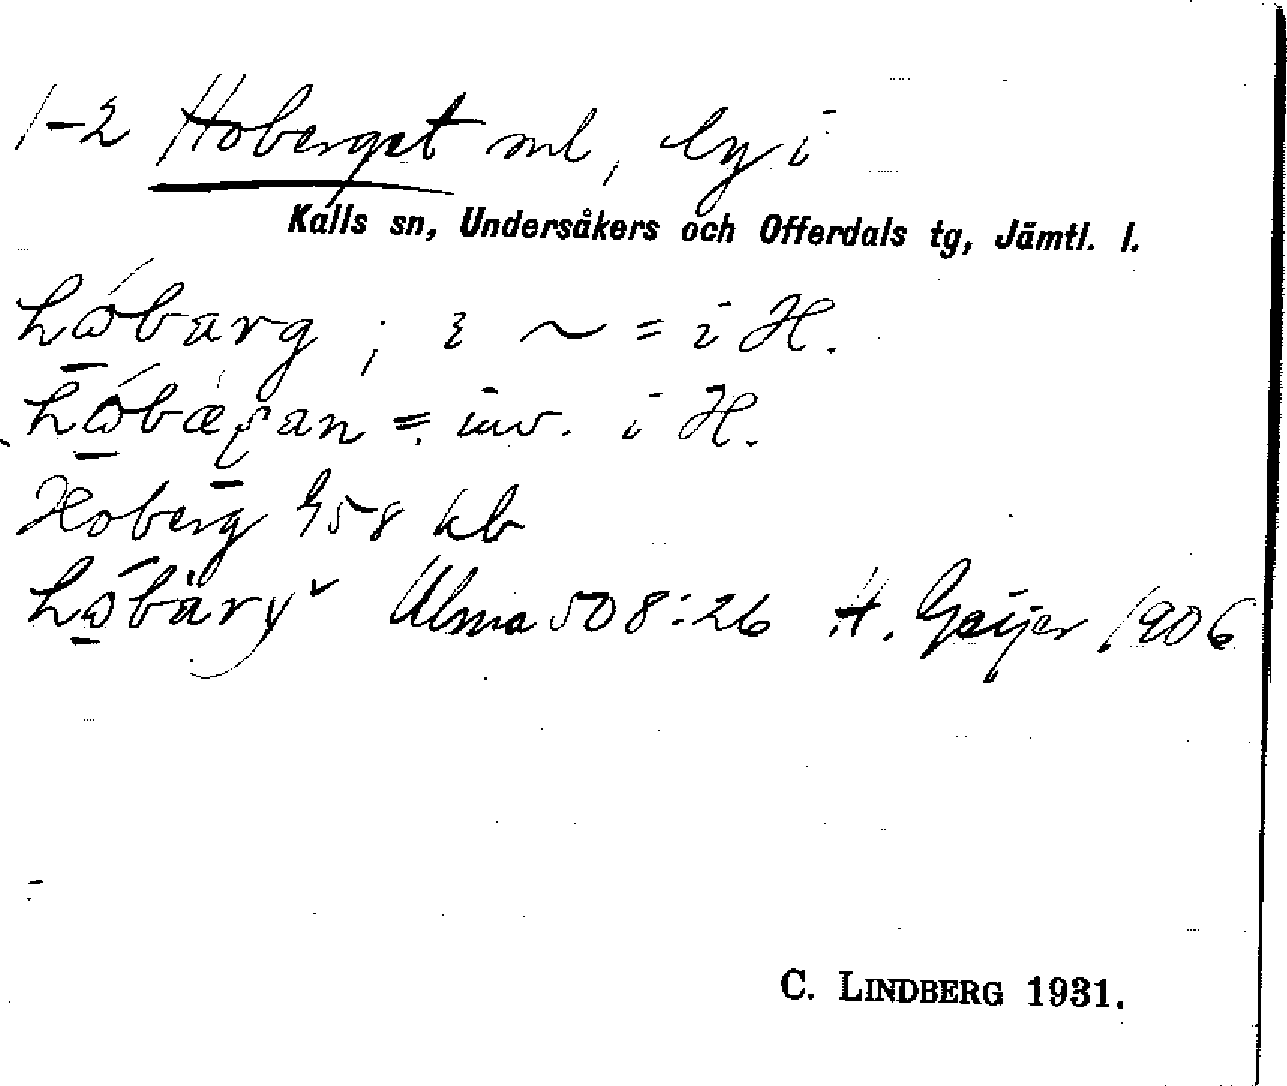 1-2 Hoberget ml, by i
Kalls sn, Undersåkers och Offerdals tg, Jämtl. l.
; i ~ = i H.
= inv. i H.
Hoberg 958 kb
Ulma 508:26 H. Geijer 1906
C. LINDBERG 1931.